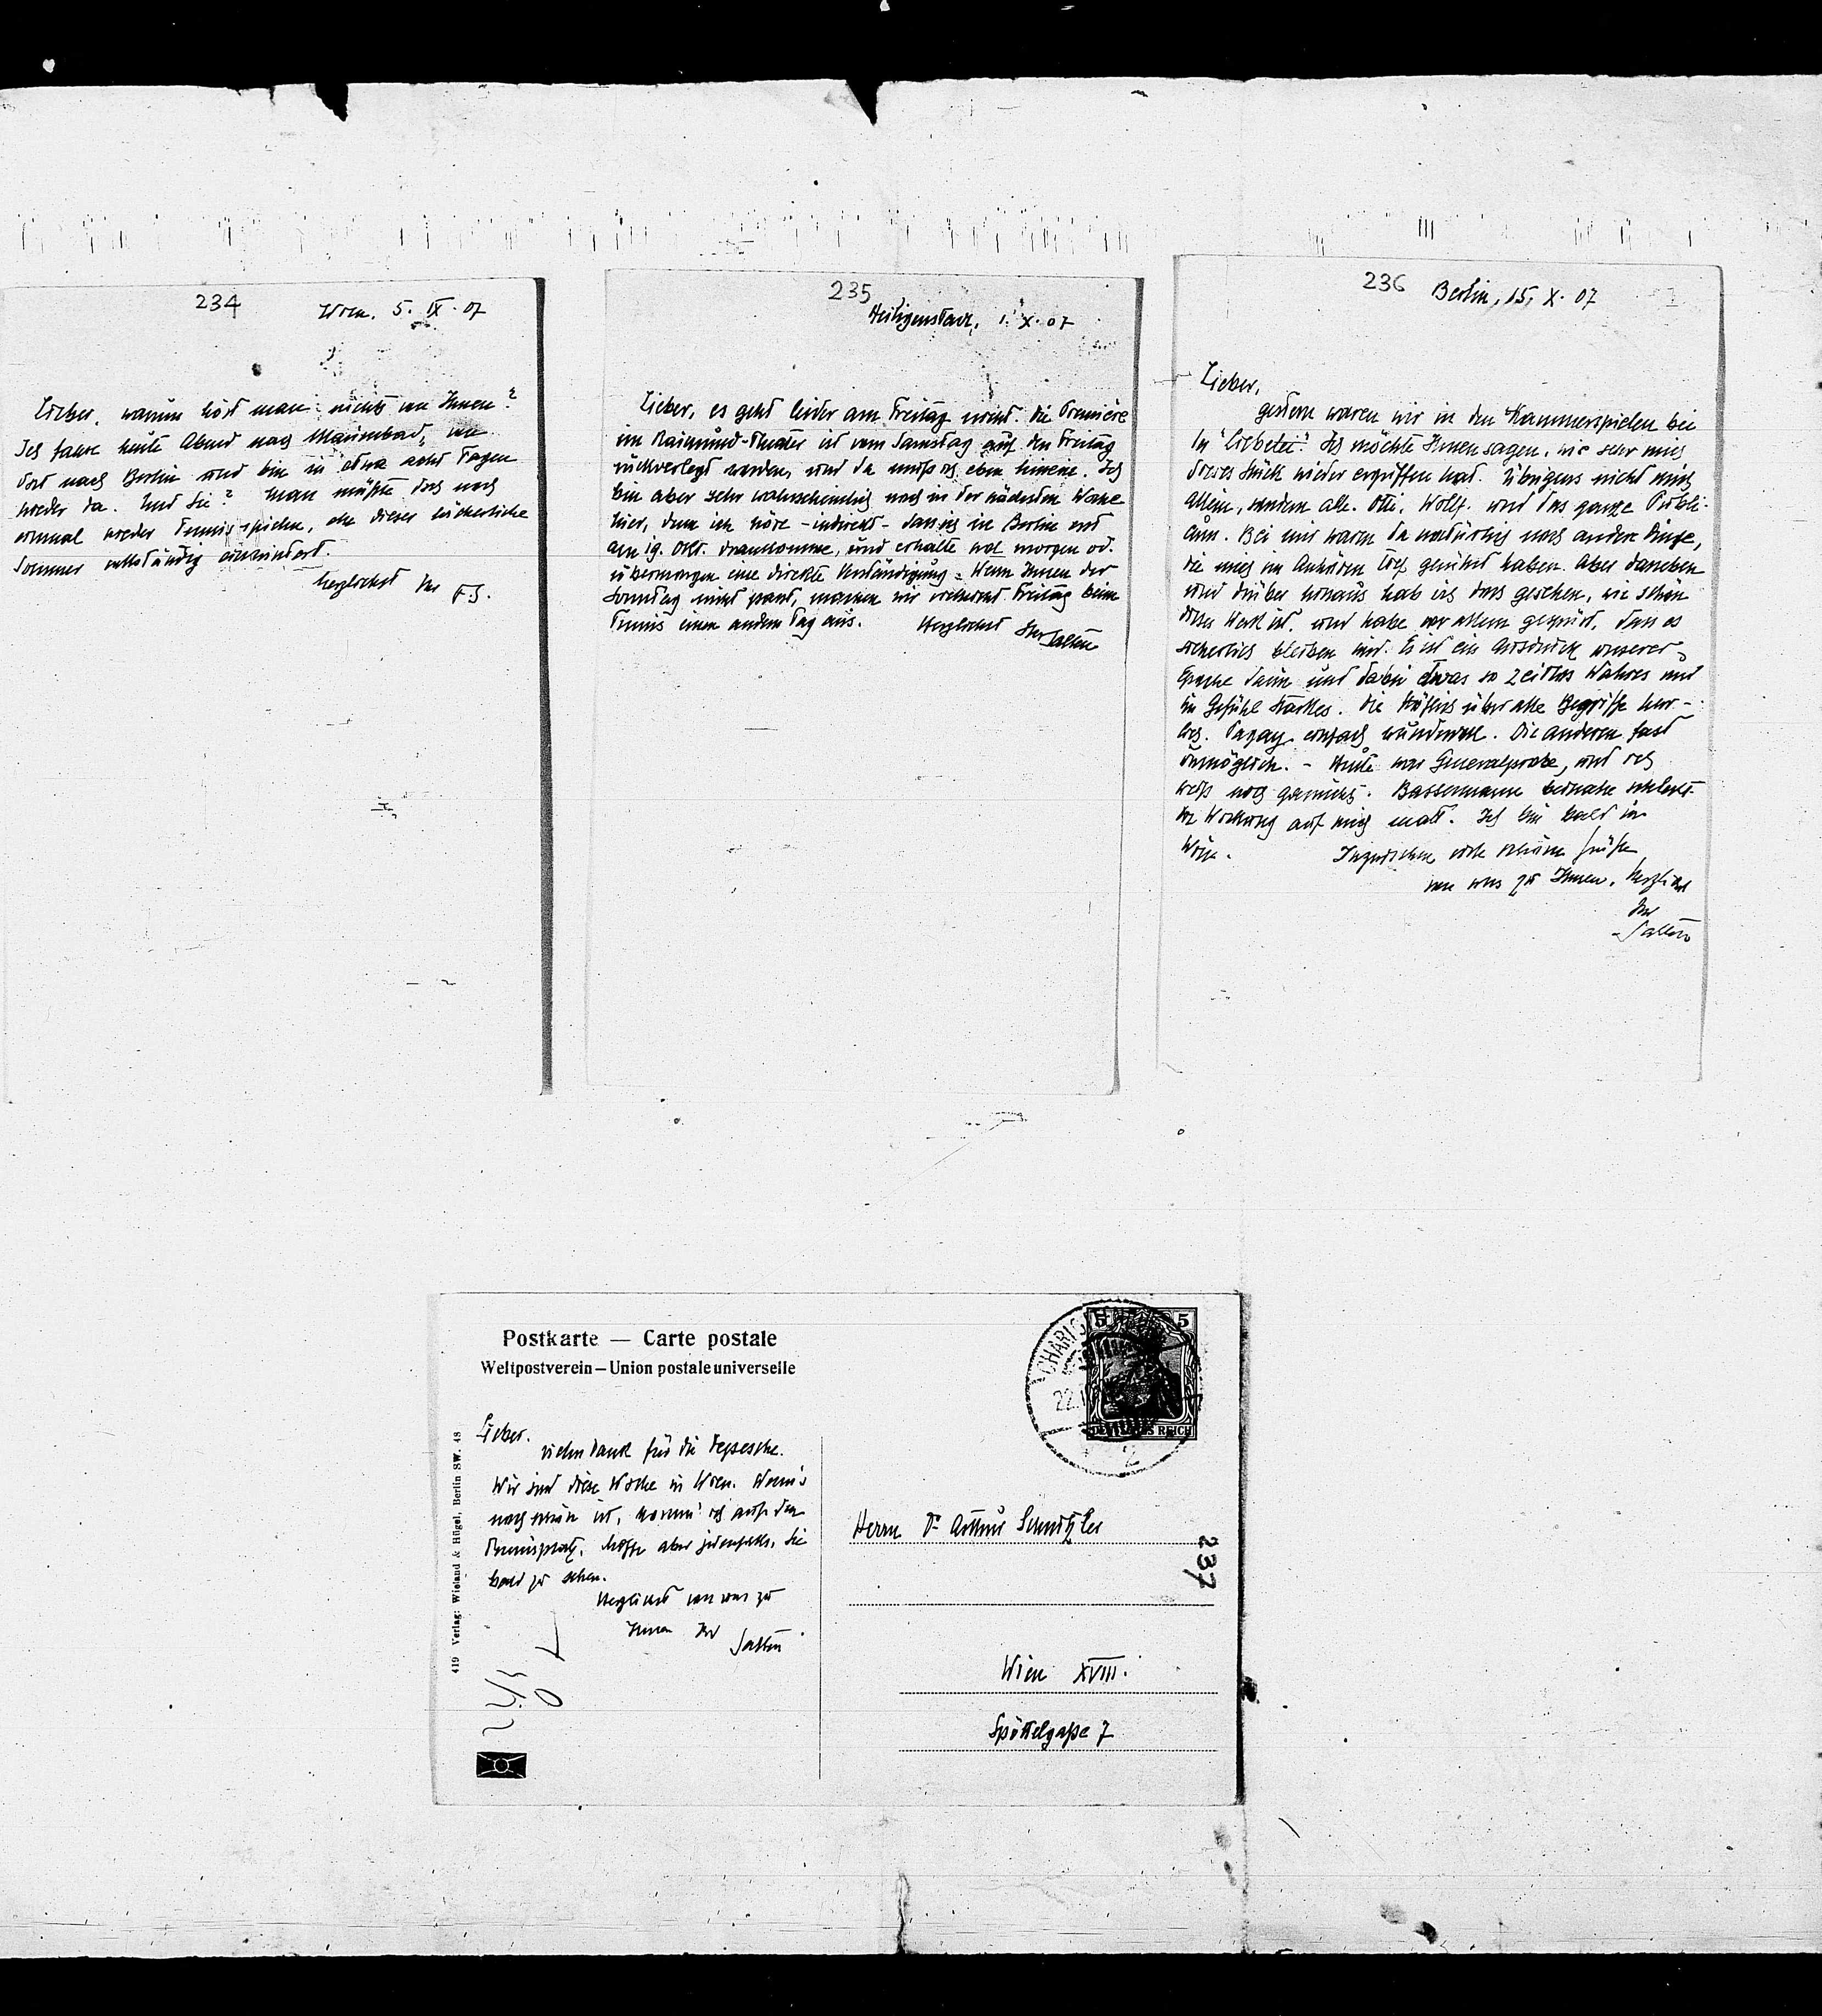 234
Wien, 5. IX. 07
Lieber, warum hört man nichts von Ihnen?
Ich fahre heute Abend nach Marienbad, von
dort nach Berlin und bin in etwa acht Tagen
wieder da. Und Sie? Man müßte doch noch
einmal wieder Tennis spielen, ehe dieser lächerliche
Sommer vollständig einwintert.
Herzlichst Ihr F.S.
235
Heiligenstadt, 1. X. 07
Lieber, es geht leider am Freitag nicht. Die Première
im Raimund-Theater ist vom Samstag auf den Freitag
rückverlegt worden, und da muß ich eben hinein. Ich
bin aber sehr wahrscheinlich noch in der nächsten Woche
hier, denn ich höre - indirekt - dass ich in Berlin erst
am 19. Okt. drankomme, und erhalte wol morgen od.
übermorgen eine direkte Verständigung. Wenn Ihnen der
Sonntag nicht passt, machen wir vielleicht Freitag beim
Tennis einen andern Tag aus. Herzlichst Ihr Salten
236
Berlin, 15. X. 07
Lieber,
gestern waren wir in den Kammerspielen bei
der "Liebelei". Ich möchte Ihnen sagen, wie sehr mich
dieses Stück wieder ergriffen hat. Übrigens nicht mich
allein, sondern alle. Otti, Wolff, und das ganze Publi-
cum. Bei mir waren da natürlich noch andere Dinge,
die mich im Anhören tief gerührt haben. Aber daneben
und drüber hinaus hab ich doch gesehen, wie schön
dieses Werk ist, und habe vor allem gespürt, dass es
sicherlich bleiben wird. Es ist ein Ausdruck unserer
Epoche darin und dabei etwas so zeitlos Wahres und
im Gefühl Starkes. Die Höflich über alle Begriffe herr-
lich. Pagay einfach wundervoll. Die anderen fast
unmöglich. - Heute war Generalprobe, und ich
weiß noch garnichts. Bassermann beinahe schlecht.
Die Wirkung auf mich matt. Ich bin bald in
Wien. Inzwischen viele schöne Grüße
von uns zu Ihnen. Herzlichst
Ihr
Salten
Postkarte — Carte postale
Weltpostverein – Union postale universelle
CHARLOTTENBURG
22.
2
5 5
DEUTSCHES REICH
419 Verlag: Wieland & Hügel, Berlin SW. 48
Lieber.
vielen Dank für die Depesche.
Wir sind diese Woche in Wien. Wenn's
noch schön ist, komm' ich auf den
Tennisplatz, hoffe aber jedenfalls, Sie
bald zu sehen.
Herzlichst von uns zu
Ihnen Ihr Salten
Herrn Dr Arthur Schnitzler
237
Wien XVIII.
Spöttelgaße 7